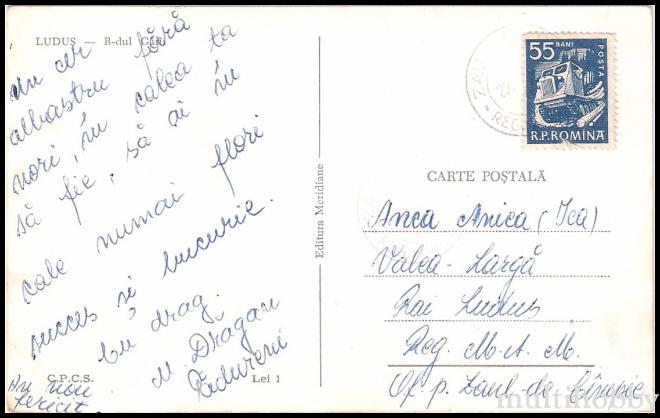 LUDUȘ — B-dul Gării
Un cer fără
albastru
nori, în calea ta
să fie, să ai în
cale numai flori
succes și bucurie.
Cu drag.
M. Drăgan
Pădureni
An nou
fericit
C.P.C.S.
Lei 1
Editura Meridiane
55 BANI
POSTA
R.P.ROMINA
ZAU
REG
CARTE POȘTALĂ
Anca Anica (Ica)
Valea-Largă
Rai Luduș
Reg. M.A.M.
Of. p. Zaul-de Cîmpie
multihobby